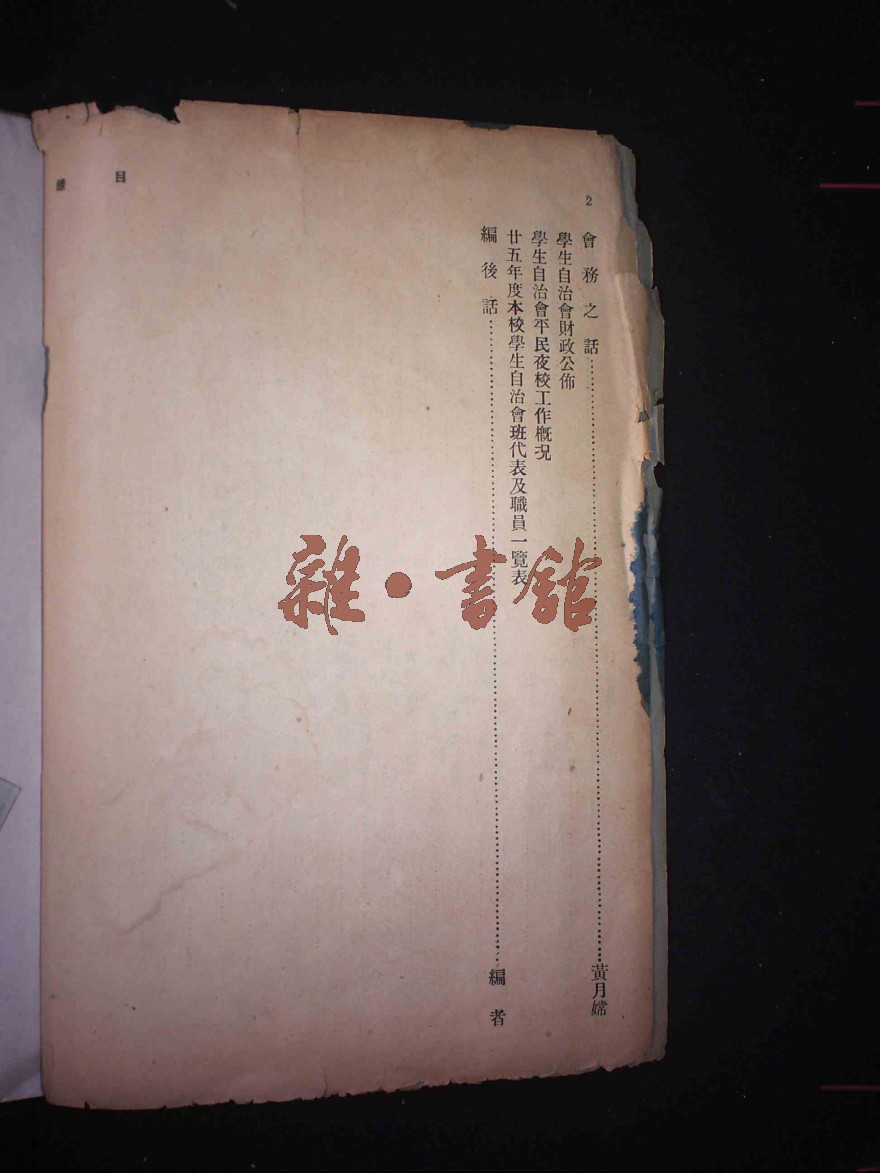 目錄
2
會務之話……黃月嫦
學生自治會財政公佈
學生自治會平民夜校工作概況
廿五年度本校學生自治會班代表及職員一覽表
編後話……編者
雜·書館